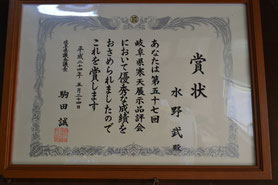 賞状
水野武殿
あなたは第五十七回
岐阜県寒天展示品評会
において優秀な成績を
おさめられましたので
これを賞します
平成二十四年 五月二十四日
岐阜県議会議長
駒田誠